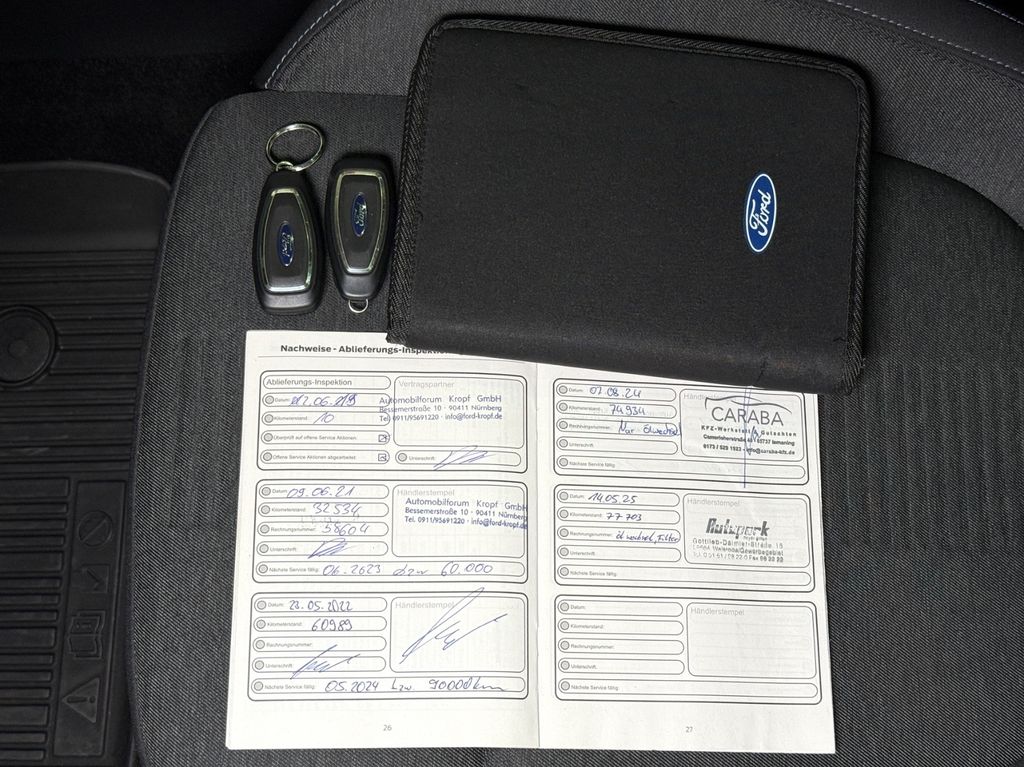 Ford
Ford
Ford
Nachweise - Ablieferungs-Inspektion
Ablieferungs-Inspektion
Vertragspartner
Datum:
Automobilforum Kropf GmbH
Bessemerstraße 10 · 90411 Nürnberg
Tel. 0911/95691220 · info@ford-kropf.de
Kilometerstand: 10
Überprüft auf offene Service Aktionen:
Offene Service Aktionen abgearbeitet:
Unterschrift:
Datum: 09.06.21
Händlerstempel
Kilometerstand: 32534
Automobilforum Kropf GmbH
Bessemerstraße 10 · 90411 Nürnberg
Tel. 0911/95691220 · info@ford-kropf.de
Rechnungsnummer: 58604
Unterschrift:
Nächste Service fällig: 06.2023 bzw 60.000
Datum: 23.05.2022
Händlerstempel
Kilometerstand: 60989
Rechnungsnummer:
Unterschrift:
Nächste Service fällig: 05.2024 bzw. 90000km
26
Datum: 07.08.24
Kilometerstand: 74934
CARABA
KFZ-Werkstatt & Gutachten
Rechnungsnummer: Nur Ölwechsel
85737 Ismaning
info@caraba-kfz.de
Unterschrift:
Nächste Service fällig:
Datum: 14.05.25
Händlerstempel
Kilometerstand: 77703
Rechnungsnummer: ölwechsel, Filter
Gottlieb-Daimler-Straße 15
Unterschrift:
Nächste Service fällig:
Datum:
Händlerstempel
Kilometerstand:
Rechnungsnummer:
Unterschrift:
Nächste Service fällig:
27